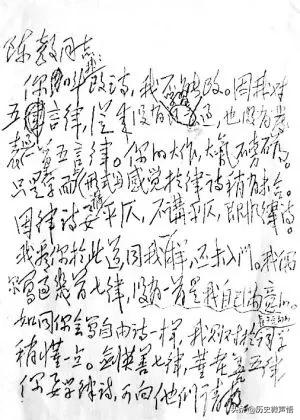 陈毅同志：
你叫我改诗，我不能改。因我对
五言律，从来没有学习过，也没有发
表过一首五言律。你的大作，大气磅礴。
只是在字面上（形式上）感觉于律诗稍有未合。
因律诗要讲平仄，不讲平仄，即非律诗。
我看你于此道，同我一样，还未入门。我偶
尔写过几首七律，没有一首是我自己满意的。
如同你会写自由诗一样，我则对于长短句的词学
稍懂一点。剑英善七律，董老善五律，
你要学律诗，可向他们请教。
头条 @历史微声悟